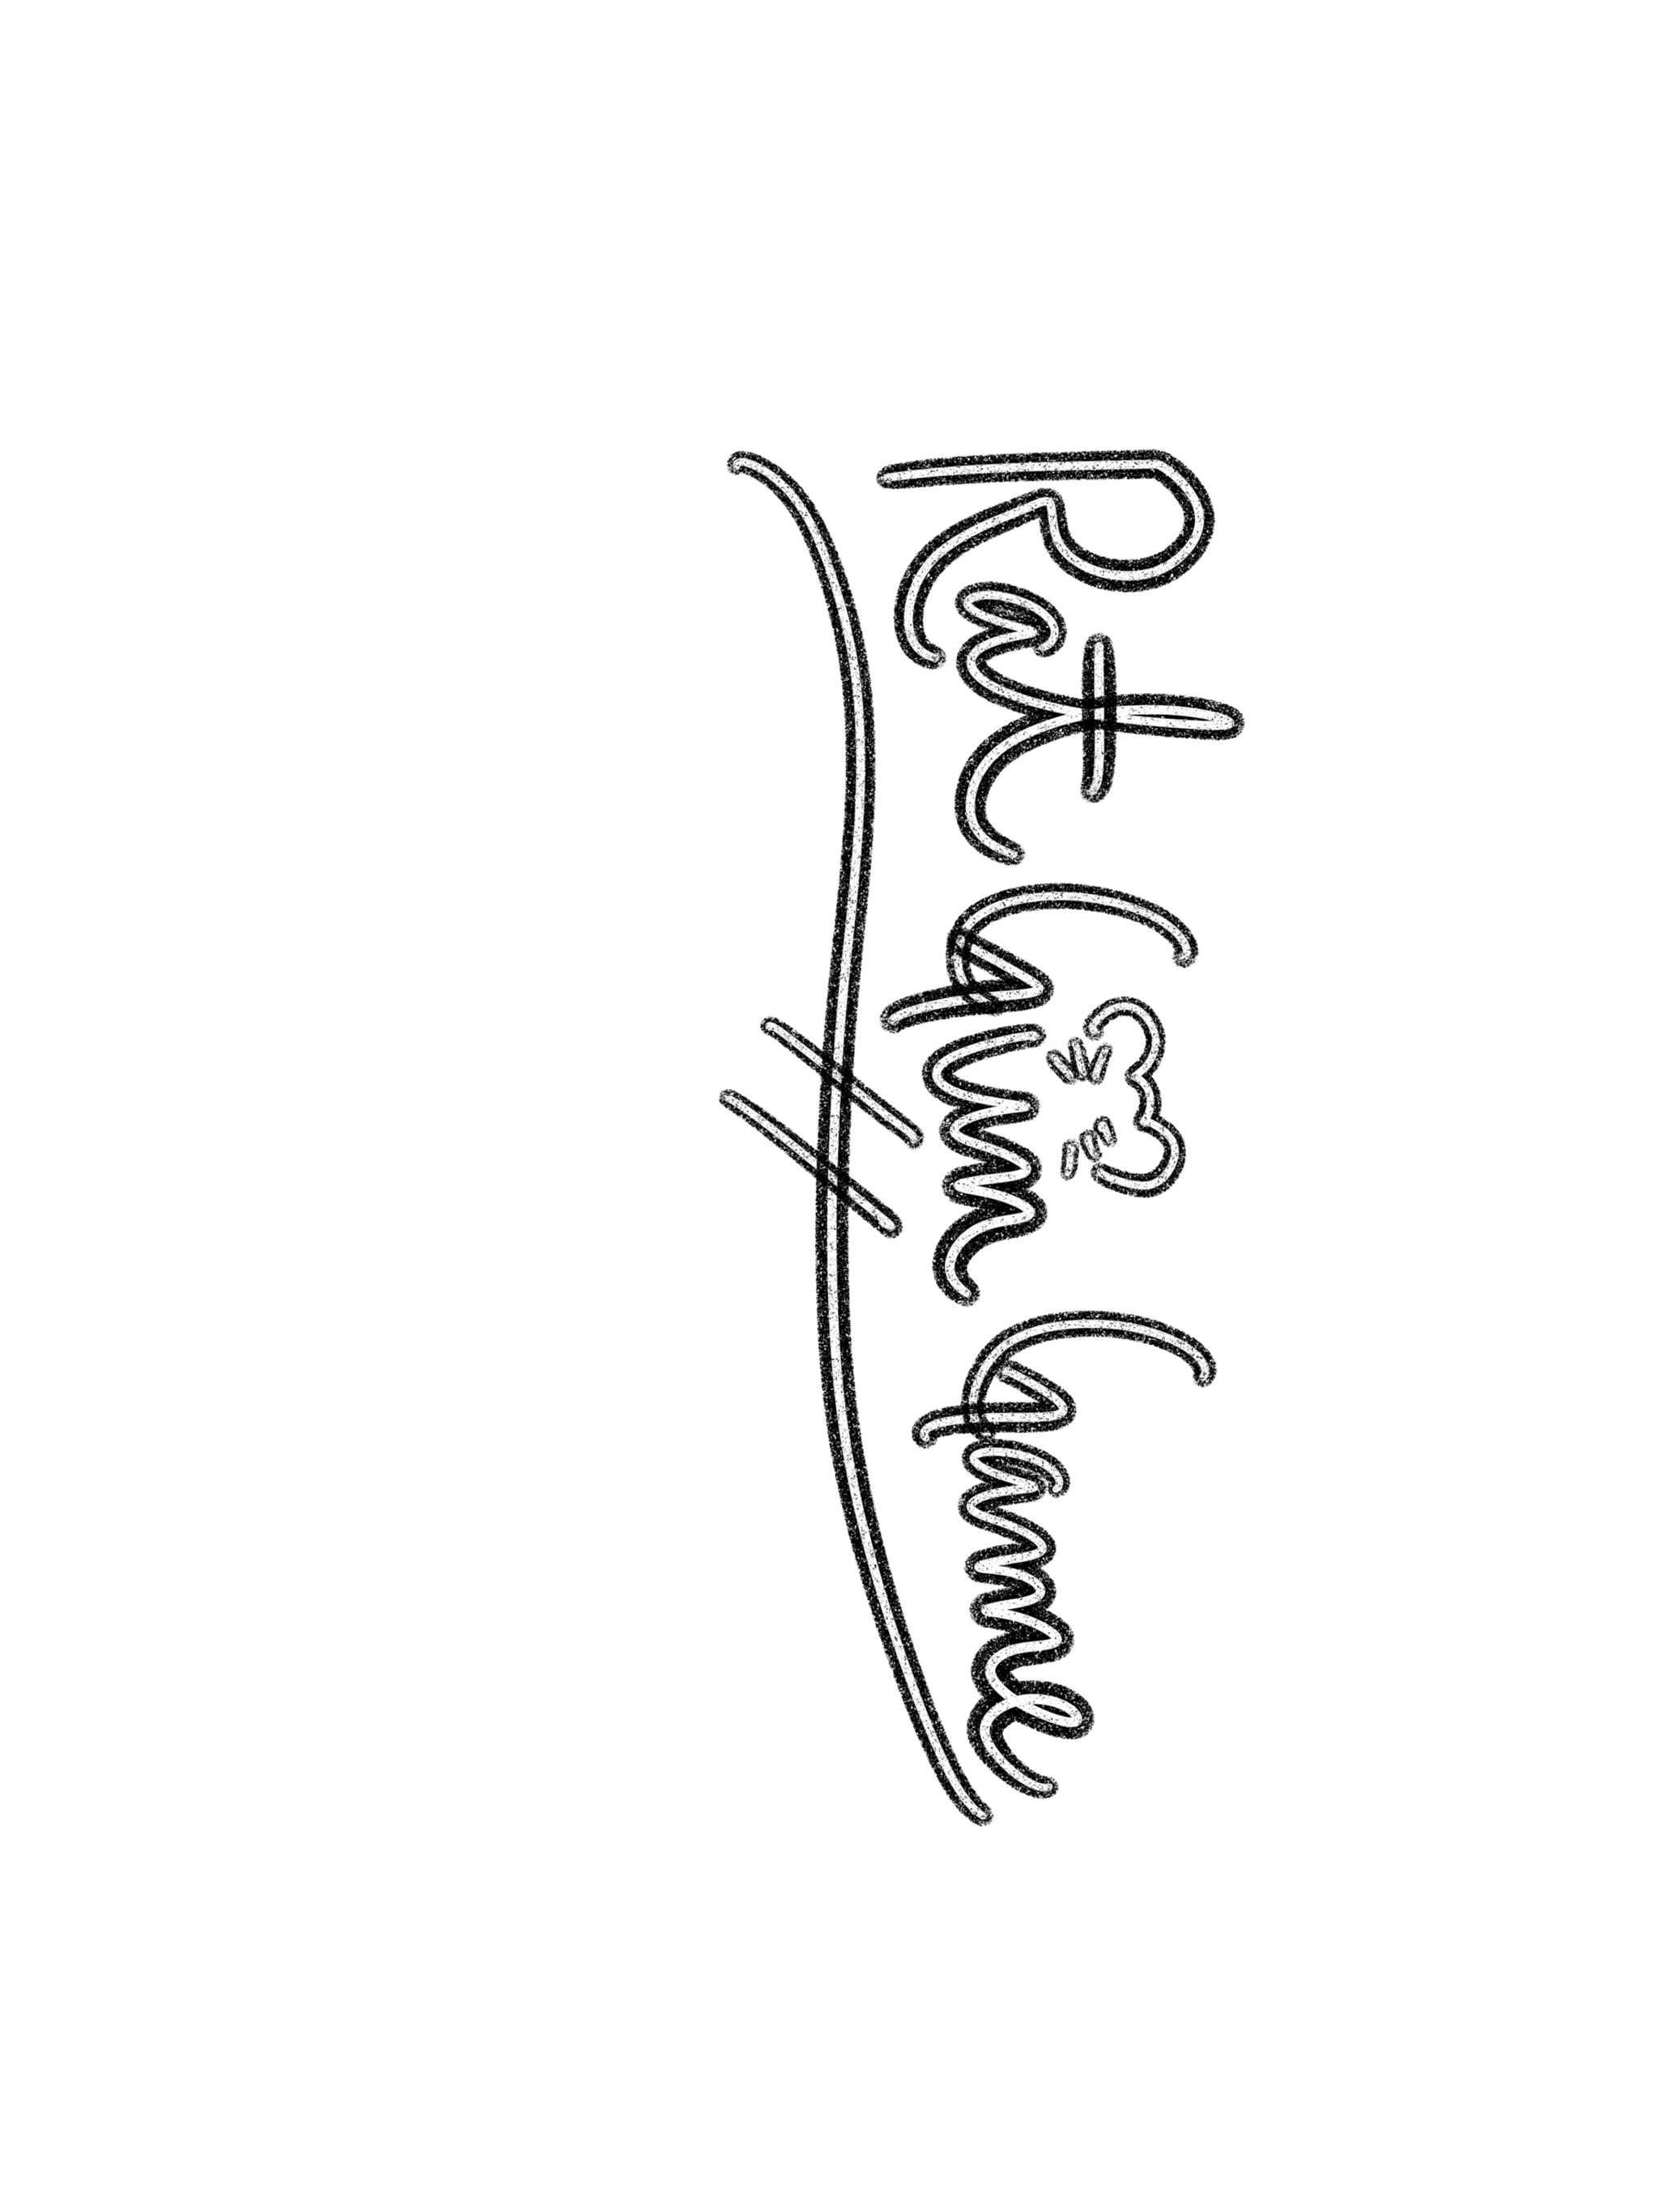 Rat Gun Game